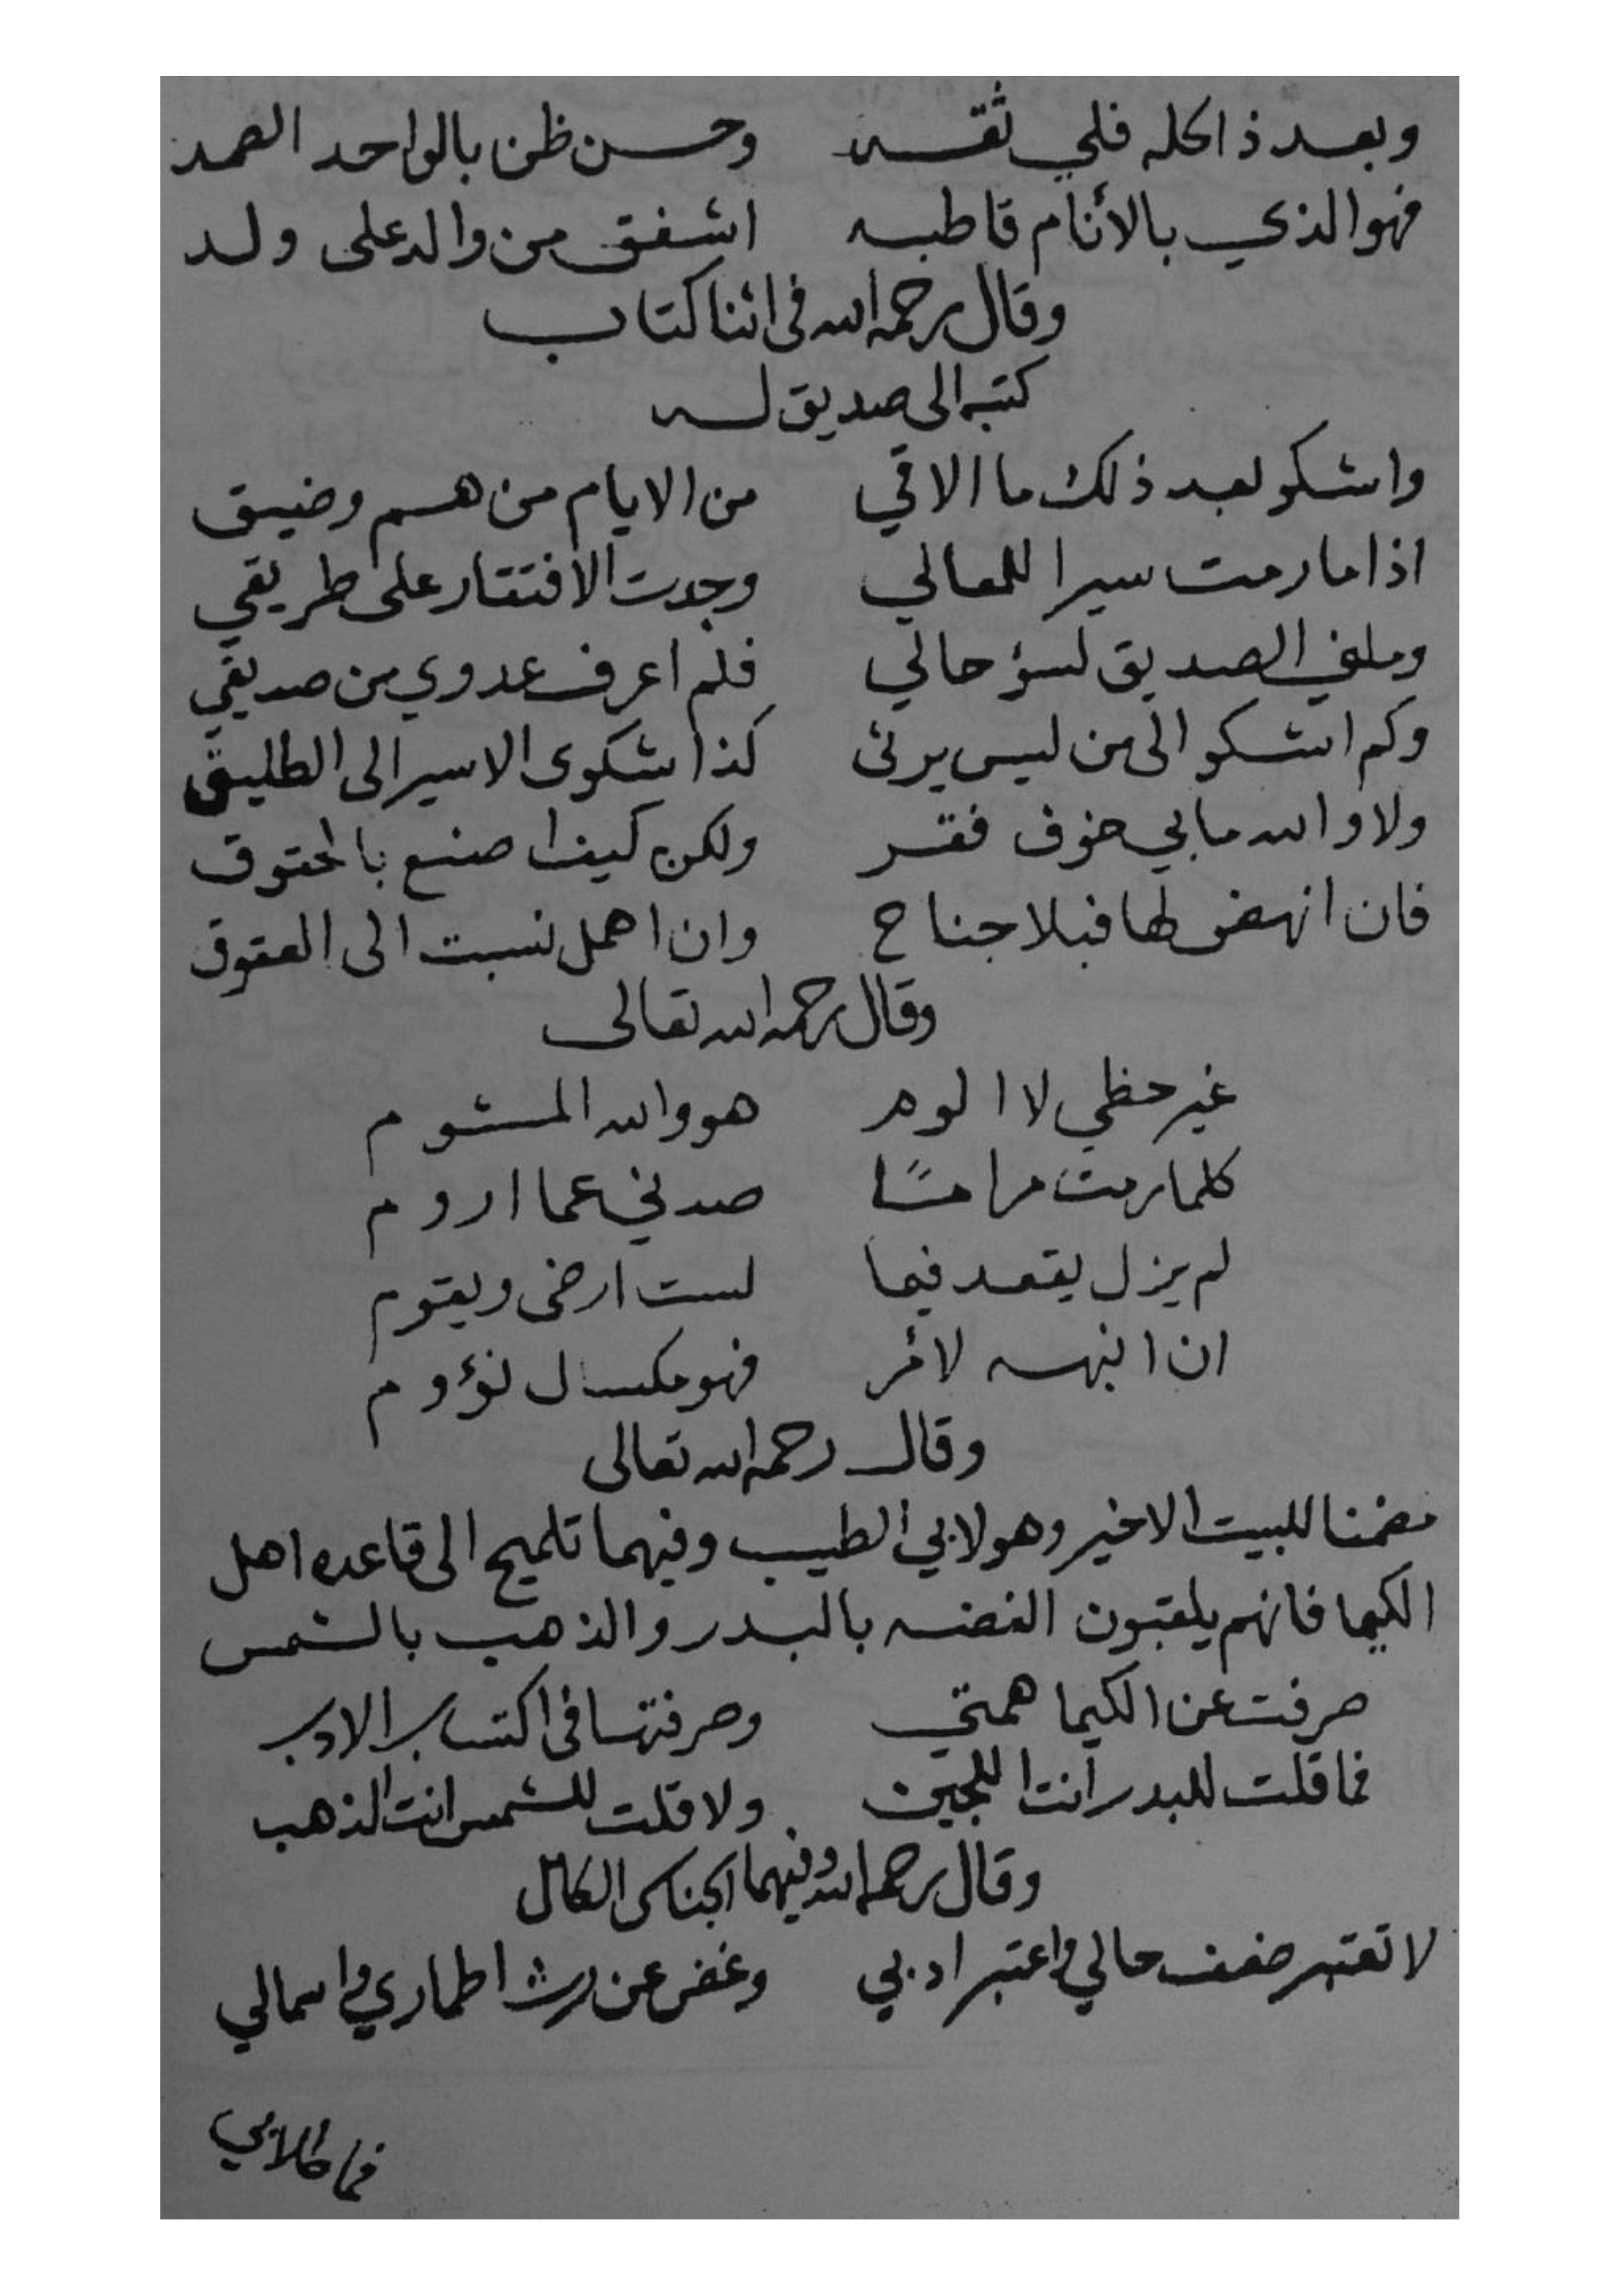 وبعد ذا كله فلي ثقه وحسن ظن بالواحد الصمد
فهو الذي بالأنام قاطبه اشفق من والد على ولد
وقال رحمه الله فى اثنا كتاب
كتبه الى صديق له
واشكو بعد ذلك ما الاقي من الايام من هم وضيق
اذا ما رمت سيرا للمعالي وجدت الافتقار على طريقي
وملني الصديق لسؤ حالي فلم اعرف عدوي من صديقي
وكم اشكو الى من ليس يرثى كذا شكوى الاسير الى الطليق
ولا والله ما بي خوف فقر ولكن كيف اصنع بالحقوق
فان انهض لها فبلا جناح وان اهمل نسبت الى العقوق
وقال رحمه الله تعالى
غير حظي لا الوم هو والله المشوم
كلما رمت مرامًا صدني عما اروم
لم يزل يقعد فيما لست ارضى ويقوم
ان انبهه لأمر فهو مكسال نؤوم
وقال رحمه الله تعالى
مضمنا للبيت الاخير وهو لابي الطيب وفيهما تلميح الى قاعده اهل
الكيميا فانهم يلقبون الفضه بالبدر والذهب بالشمس
صرفت عن الكيميا همتي وصرفتها فى اكتساب الادب
فما قلت للبدر انت اللجين ولا قلت للشمس انت الذهب
وقال رحمه الله وفيهما الجناس الكامل
لا تعتبر ضعف حالي واعتبر ادبي وغض عن رث اطماري واسمالي
فما طلابي